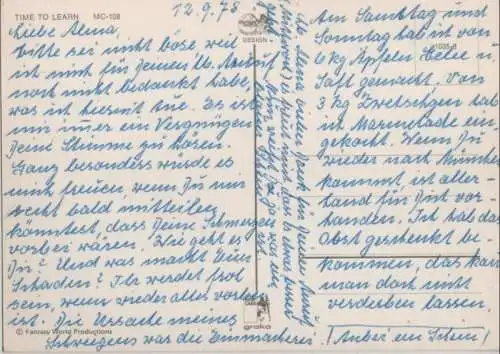 TIME TO LEARN MC-108
12.9.78
DESIGN
1035-8
Liebe Alma,
bitte sei nicht böse, weil
ich mich für Deinen lb. Anruf
noch nicht bedankt habe,
was ich hiermit tue. Es ist
mir immer ein Vergnügen
Deine Stimme zu hören.
Ganz besonders würde es
mich freuen, wenn Du mir
recht bald mitteilen
könntest, dass Deine Schmerzen
vorbei wären. Wie geht es
Dir? Und was macht Dein
Schaden? Ihr werdet froh
sein, wenn wieder alles vorbei
ist. Die Ursache meines
Schweigens war die Einmacherei!
Am Samstag und
Sonntag hab ich von
6 kg Äpfeln Gelee u.
Saft gemacht. Von
3 kg Zwetschgen hab
ich Marmelade ein
gekocht. Wenn Du
wieder nach München
kommst, ist aller-
hand für Dich vor-
handen. Ich hab das
Obst geschenkt be-
kommen, das kann
man doch nicht
verderben lassen.
Anbei ein Schein!
Lb. Alma vielen Dank für Deinen Anruf
es freut mich dass es etwas besser
© Fantasy World Productions
grako